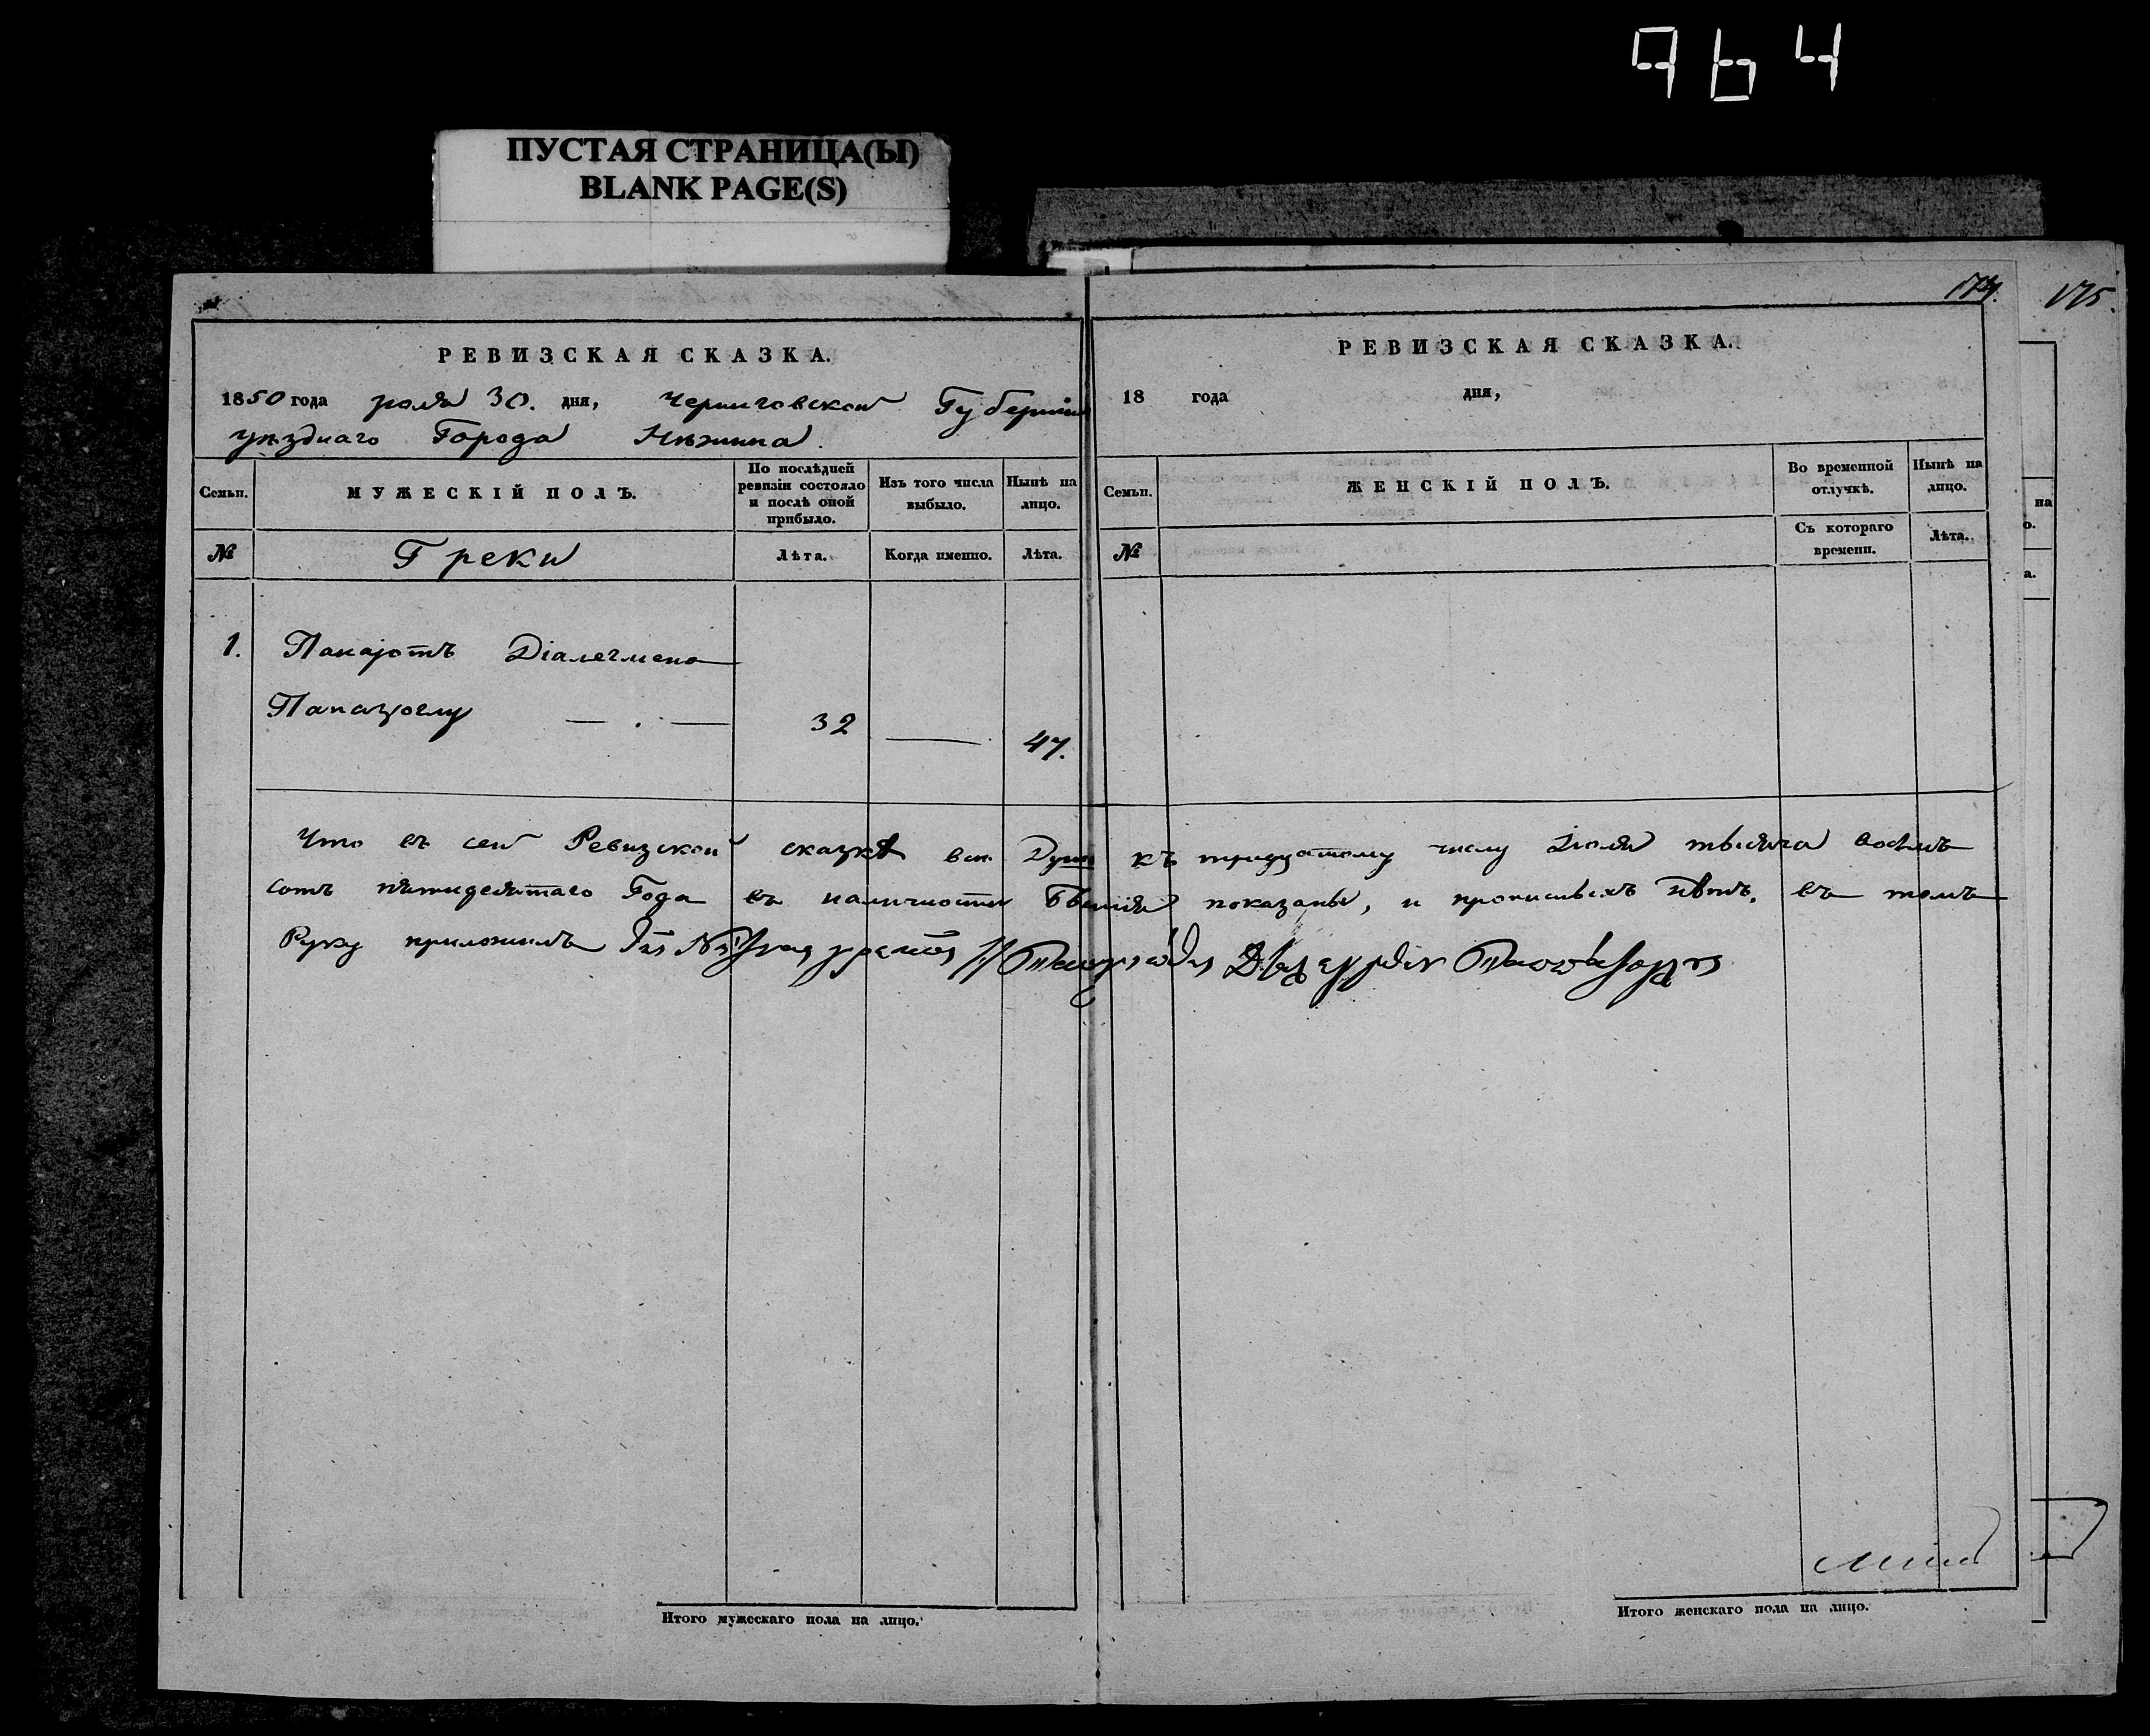 964
ПУСТАЯ СТРАНИЦА(Ы)
BLANK PAGE(S)
174.
175.
РЕВИЗСКАЯ СКАЗКА.
1850 года июля 30. дня, Черниговской Губерніи
уѣзднаго Города Нѣжина.
Семьи.
МУЖЕСКІЙ ПОЛЪ.
По послѣдней ревизіи состояло и послѣ оной прибыло.
Изъ того числа выбыло.
Нынѣ на лицо.
№
Греки
Лѣта.
Когда именно.
Лѣта.
1. Панаіотъ
32
47.
РЕВИЗСКАЯ СКАЗКА.
18 года дня,
Семьи.
ЖЕНСКІЙ ПОЛЪ.
Во временной отлучкѣ.
Нынѣ на лицо.
№
Съ котораго времени.
Лѣта.
на
о.
а.
Что въ сей Ревизской сказкѣ всѣ Души къ тридцатому числу Іюля тысяча восемь
сотъ пятидесятаго Года въ наличности показаны, и прописныхъ нѣтъ, въ томъ
Руку приложилъ
Итого мужескаго пола на лицо.
Итого женскаго пола на лицо.